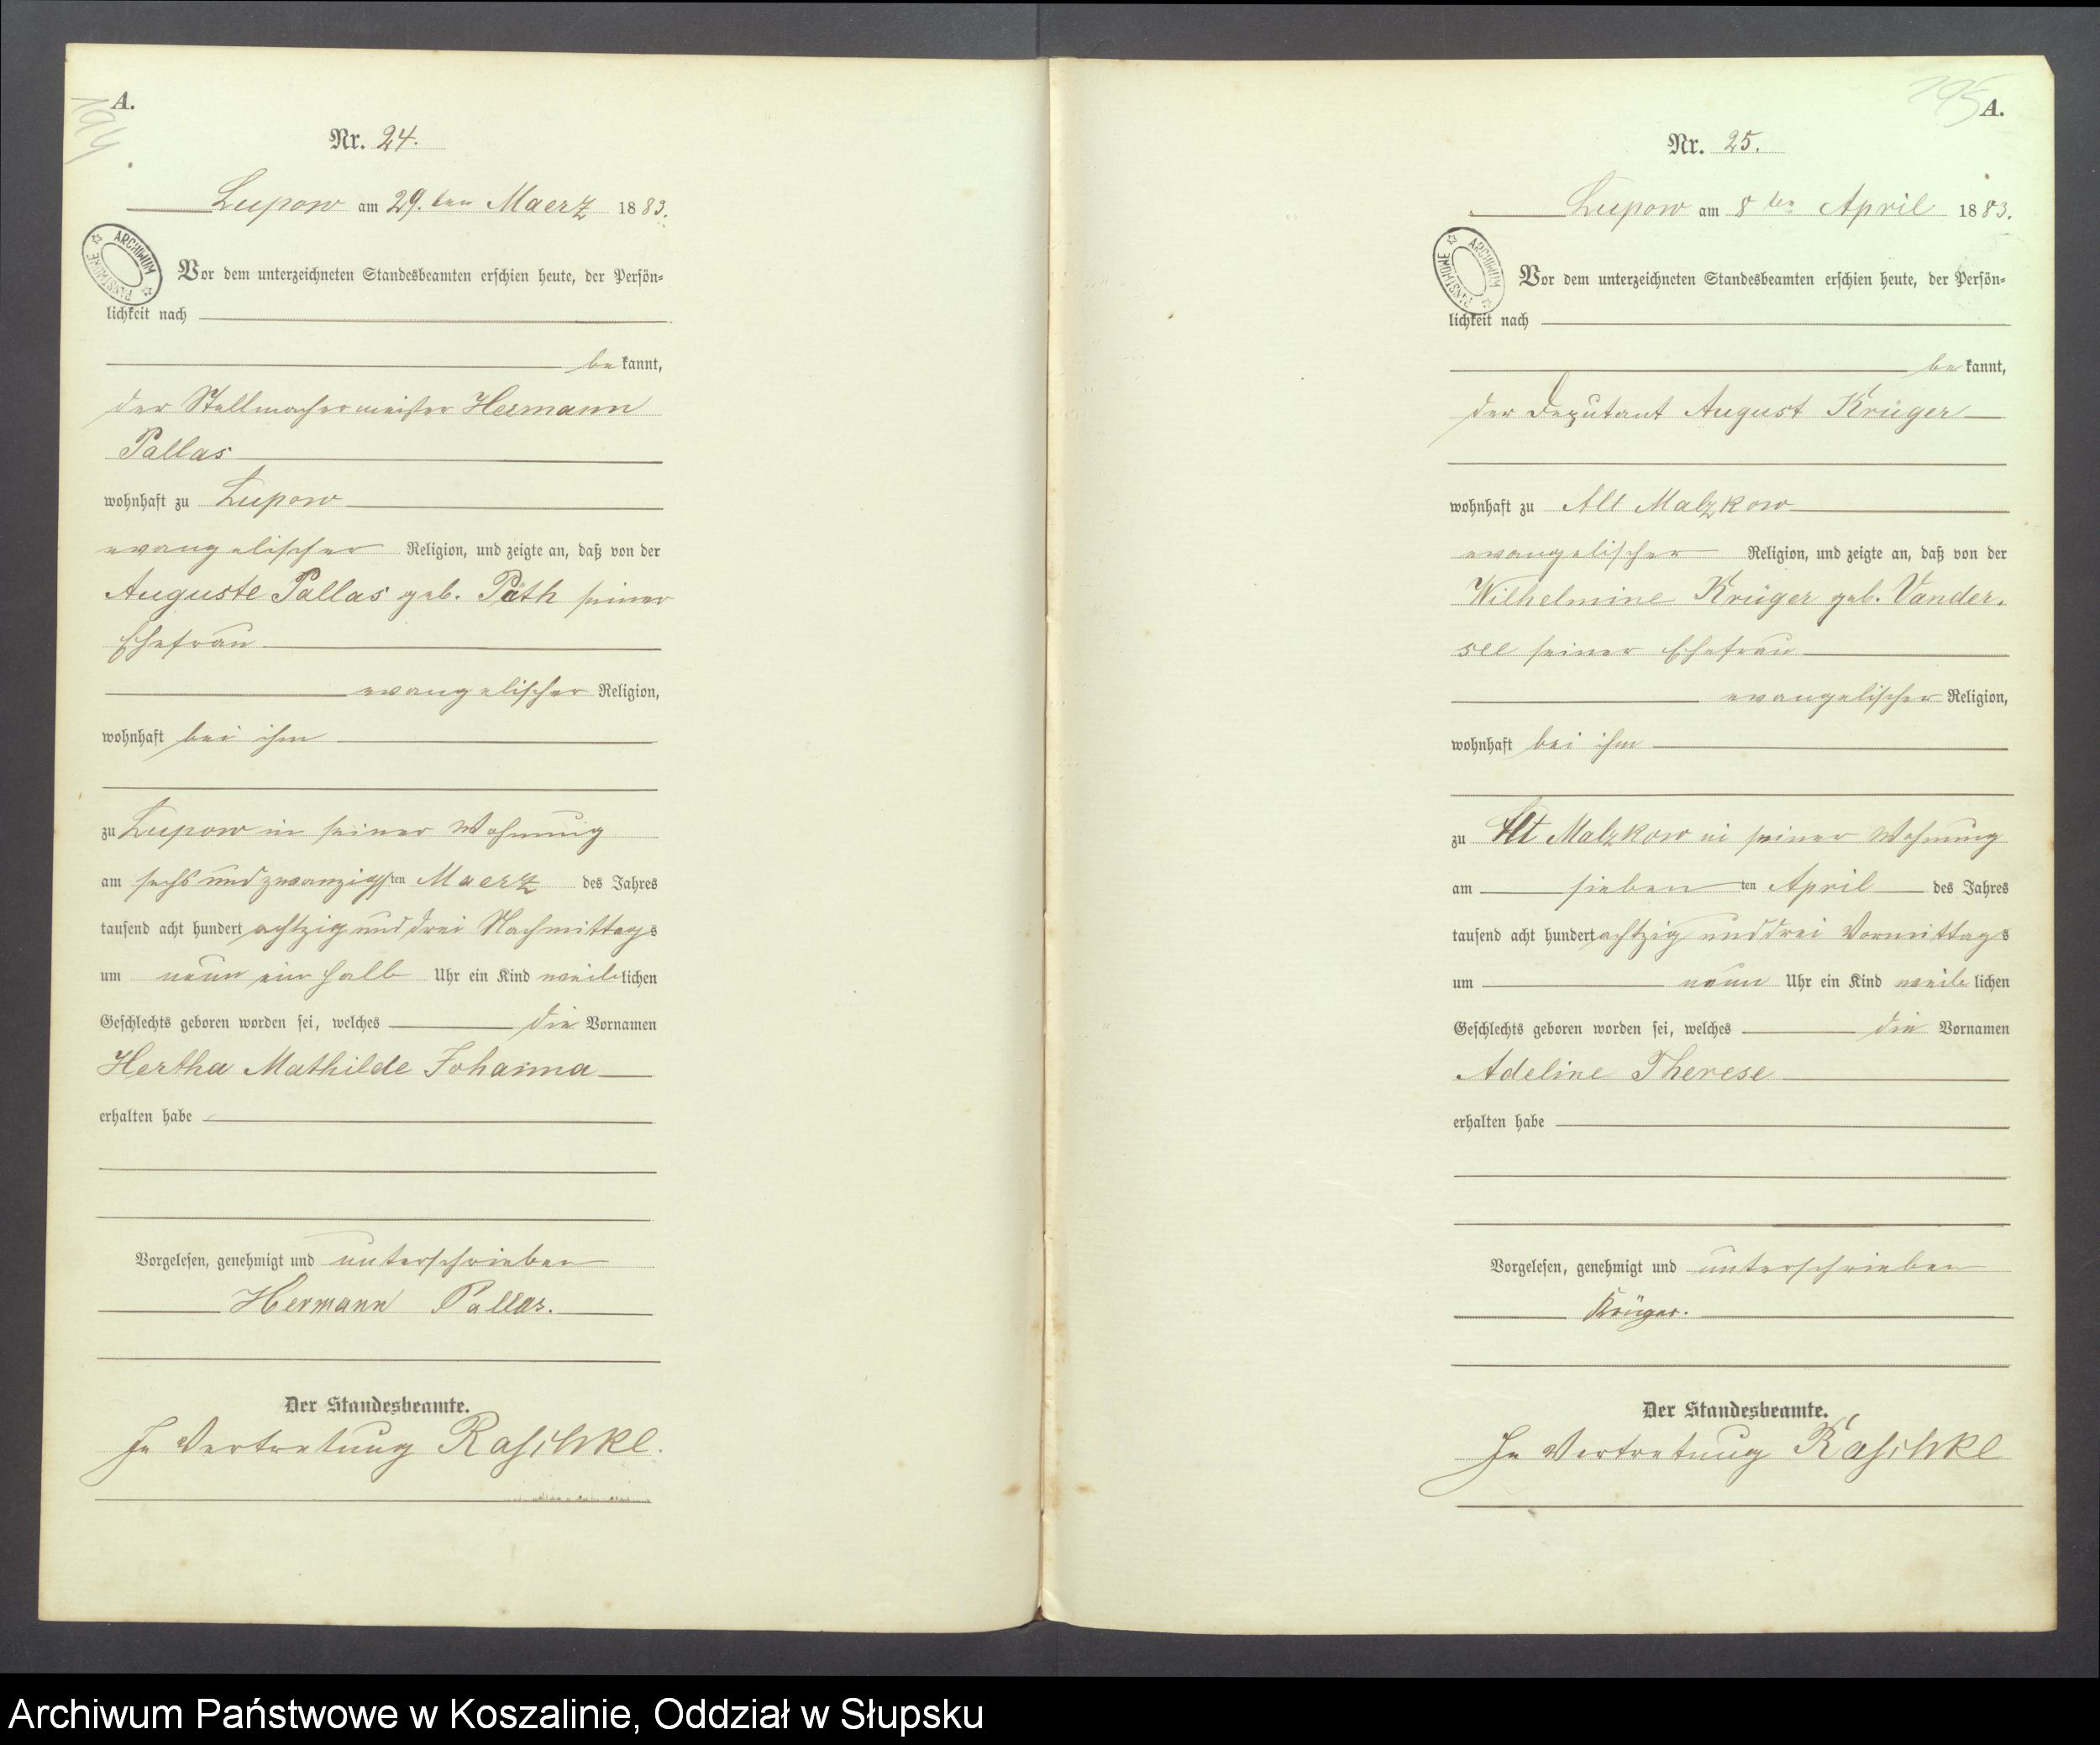 A.
194
Nr. 24.
Lupow am 29.ten Maerz 1883.
ARCHIWUM PAŃSTWOWE
Vor dem unterzeichneten Standesbeamten erschien heute, der Persön-
lichkeit nach
be kannt,
der Stellmachermeister Hermann
Pallas
wohnhaft zu Lupow
evangelischer Religion, und zeigte an, daß von der
Auguste Pallas geb. Päth seiner
Ehefrau
evangelischer Religion,
wohnhaft bei ihm
zu Lupow in seiner Wohnung
am sechs und zwanzigsten Maerz des Jahres
tausend acht hundert achtzig und drei Nachmittags
um neun ein halb Uhr ein Kind weiblichen
Geschlechts geboren worden sei, welches die Vornamen
Hertha Mathilde Johanna
erhalten habe
Vorgelesen, genehmigt und unterschrieben
Hermann Pallas.
Der Standesbeamte.
In Vertretung Raschke.
195
A.
Nr. 25.
Lupow am 8ten April 1883.
ARCHIWUM PAŃSTWOWE
Vor dem unterzeichneten Standesbeamten erschien heute, der Persön-
lichkeit nach
be kannt,
der Deputant August Krüger
wohnhaft zu Alt Malzkow
evangelischer Religion, und zeigte an, daß von der
Wilhelmine Krüger geb. Vander-
see seiner Ehefrau
evangelischer Religion,
wohnhaft bei ihm
zu Alt Malzkow in seiner Wohnung
am sieben ten April des Jahres
tausend acht hundert achtzig und drei Vormittags
um neun Uhr ein Kind weiblichen
Geschlechts geboren worden sei, welches die Vornamen
Adeline Therese
erhalten habe
Vorgelesen, genehmigt und unterschrieben
Krüger.
Der Standesbeamte.
In Vertretung Raschke
Archiwum Państwowe w Koszalinie, Oddział w Słupsku